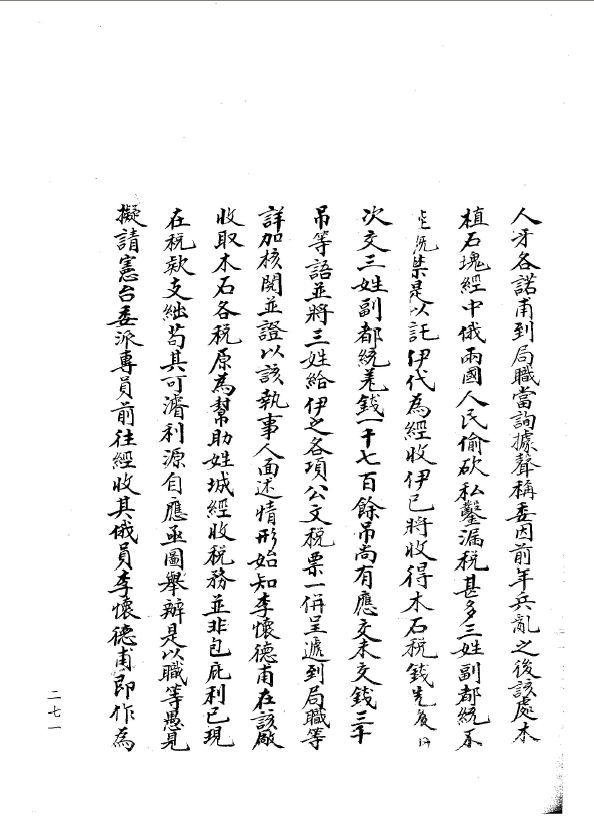 人牙各諾甫到局職當詢據聲稱委因前年兵亂之後該處木
植石塊經中俄兩國人民偷砍私鑿漏稅甚多三姓副都統不
禁是以託伊代為經收伊已將收得木石稅錢先後
次交三姓副都統羌錢一千七百餘吊尚有應交未交錢三千
吊等語並將三姓給伊之各項公文稅票一併呈遞到局職等
詳加核閱並證以該執事人面述情形始知李懷德甫在該廠
收取木石各稅原為幫助姓城經收稅務並非包庇利已現
在稅款支絀苟其可濬利源自應亟圖舉辦是以職等愚見
擬請憲台委派專員前往經收其俄員李懷德甫即作為
二七一